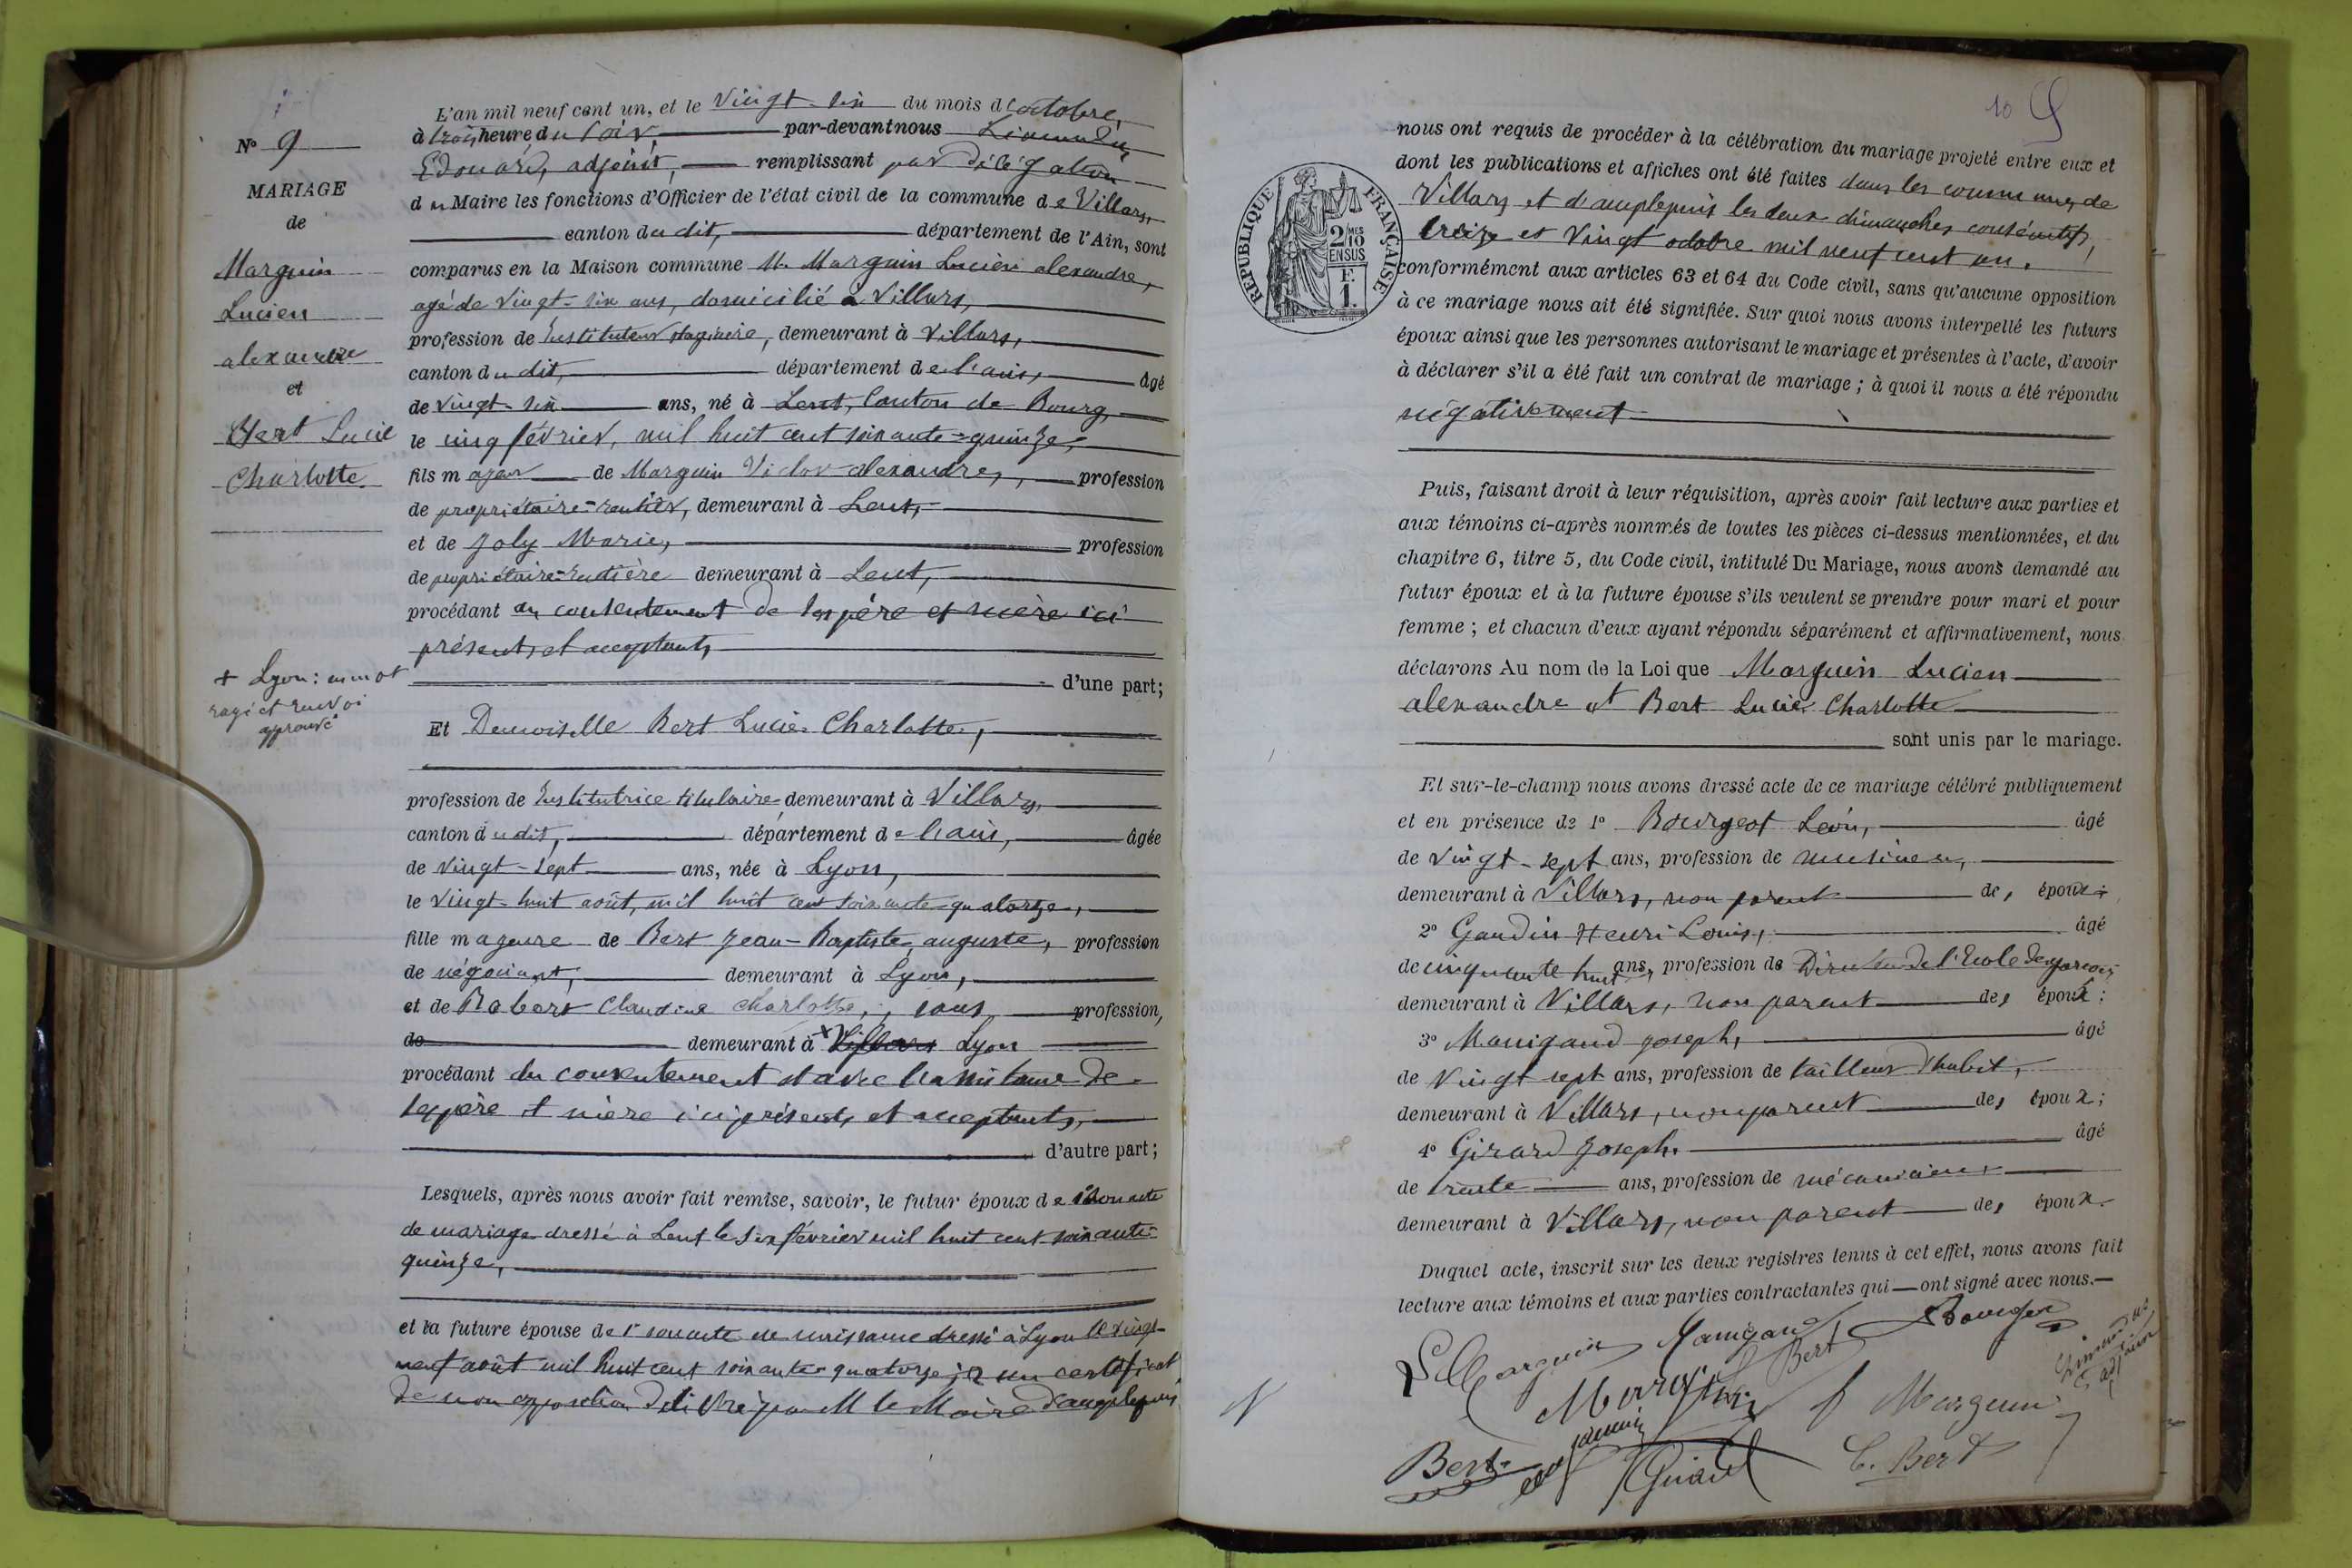 N° 9
MARIAGE
de
Marguin
Lucien
alexandre
et
Bert Lucie
Charlotte
+ Lyon : un mot
rayé et renvoi
approuvé
L'an mil neuf cent un, et le vingt-six du mois d'octobre,
à trois heure du soir par-devant nous
Edouard, adjoint, remplissant par délégation
du Maire les fonctions d'Officier de l'état civil de la commune de Villars,
canton du dit, département de l'Ain, sont
comparus en la Maison commune M. Marguin Lucien alexandre,
agé de vingt-six ans, domicilié à Villars,
profession de Instituteur stagiaire, demeurant à Villars,
canton du dit, département de l'ain, âgé
de vingt-six ans, né à Lent, Canton de Bourg,
le cinq février, mil huit cent soixante-quinze,
fils majeur de Marguin Victor alexandre, profession
de propriétaire-rentier, demeurant à Lent,
et de Joly Marie, profession
de propriétaire-rentière demeurant à Lent,
procédant du consentement de ses père et mère ici
présents et acceptants,
d'une part;
Et Demoiselle Bert Lucie Charlotte,
profession de Institutrice titulaire demeurant à Villars,
canton du dit, département de l'ain, âgée
de vingt-sept ans, née à Lyon,
le vingt-huit août, mil huit cent soixante-quatorze,
fille majeure de Bert Jean-Baptiste auguste, profession
de négociant, demeurant à Lyon,
et de Robert Claudine Charlotte, sans profession,
de demeurant à + Villars Lyon
procédant du consentement et avec l'assistance de
ses père et mère ici présents et acceptants,
d'autre part;
Lesquels, après nous avoir fait remise, savoir, le futur époux de son acte
de mariage dressé à Lent le six février mil huit cent soixante-
quinze,
et la future épouse de 1° son acte de naissance dressé à Lyon le vingt-
neuf août mil huit cent soixante-quatorze; 2° un certificat
de non opposition délivré par M le Maire d'amplepuis
10 9
REPUBLIQUE FRANÇAISE
2/10MES
EN SUS
F.
1.
nous ont requis de procéder à la célébration du mariage projeté entre eux et
dont les publications et affiches ont été faites dans les communes de
Villars et d'amplepuis les deux dimanches consécutifs,
treize et vingt octobre mil neuf cent un.
conformément aux articles 63 et 64 du Code civil, sans qu'aucune opposition
à ce mariage nous ait été signifiée. Sur quoi nous avons interpellé les futurs
époux ainsi que les personnes autorisant le mariage et présentes à l'acte, d'avoir
à déclarer s'il a été fait un contrat de mariage ; à quoi il nous a été répondu
négativement
Puis, faisant droit à leur réquisition, après avoir fait lecture aux parties et
aux témoins ci-après nommés de toutes les pièces ci-dessus mentionnées, et du
chapitre 6, titre 5, du Code civil, intitulé Du Mariage, nous avons demandé au
futur époux et à la future épouse s'ils veulent se prendre pour mari et pour
femme ; et chacun d'eux ayant répondu séparément et affirmativement, nous
déclarons Au nom de la Loi que Marguin Lucien
alexandre et Bert Lucie Charlotte
sont unis par le mariage.
Et sur-le-champ nous avons dressé acte de ce mariage célébré publiquement
et en présence de 1° Bourgeot Léon, âgé
de vingt-sept ans, profession de musicien,
demeurant à Villars, non parent des époux;
2° Gaudin Henri Louis, âgé
de cinquante huit ans, profession de Directeur de l'Ecole de garçons
demeurant à Villars, non parent des époux;
3° Manigand Joseph, âgé
de vingt sept ans, profession de tailleur d'habit,
demeurant à Villars, non parent des époux;
4° Girard Joseph. âgé
de trente ans, profession de mécanicien,
demeurant à Villars, non parent des époux.
Duquel acte, inscrit sur les deux registres tenus à cet effet, nous avons fait
lecture aux témoins et aux parties contractantes qui ont signé avec nous.
L Marguin Manigand Bert Bourgeot
Marguin J Marguin
Bert Gaudin Girard C. Bert